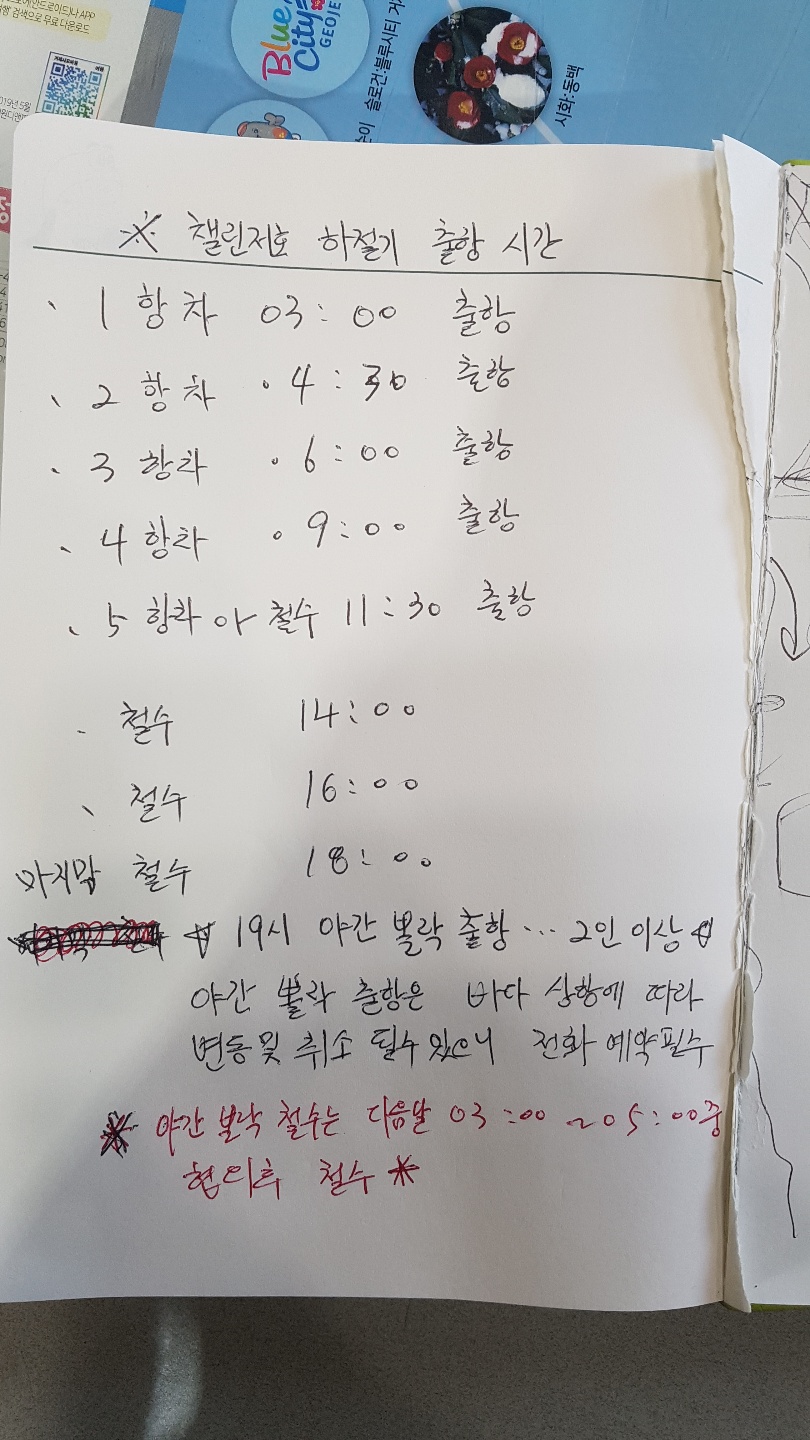 행' 검색으로 무료 다운로드
2019년 5월
Blue
City
GEOJE
슬로건:블루시티 거
시화:동백
※ 챌린저호 하절기 출항 시간
、1 항차 03:00 출항
、2 항차 ·4:30 출항
· 3 항차 ·6:00 출항
、4 항차 ·9:00 출항
、5 항차 아 철수 11:30 출항
· 철수 14:00
、철수 16:00
마지막 철수 18:00
19시 야간 볼락 출항... 2인 이상
야간 볼락 출항은 바다 상황에 따라
변동및 취소 될수 있으니 전화 예약필수
※ 야간 볼락 철수는 다음날 03:00 ~ 05:00중
협의후 철수 *